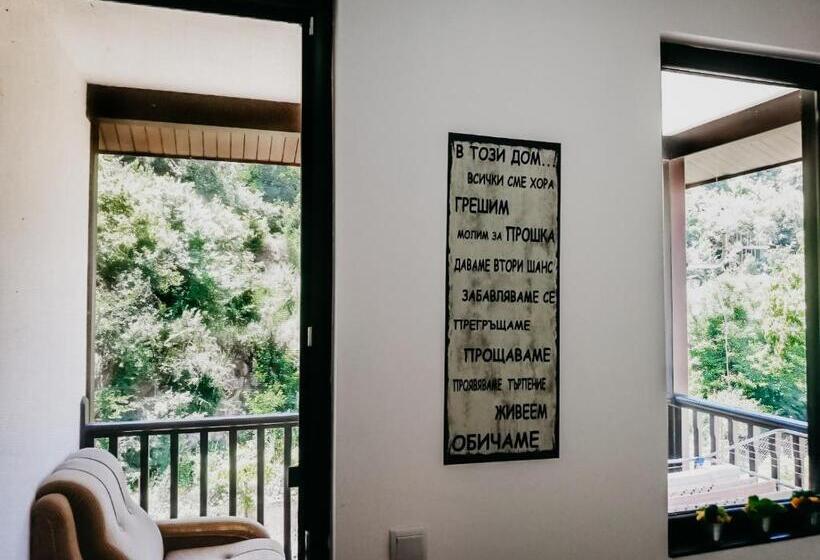 В ТОЗИ ДОМ...!
ВСИЧКИ СМЕ ХОРА
ГРЕШИМ
МОЛИМ ЗА ПРОШКА
ДАВАМЕ ВТОРИ ШАНС
ЗАБАВЛЯВАМЕ СЕ
ПРЕГРЪЩАМЕ
ПРОЩАВАМЕ
ПРОЯВЯВАМЕ ТЪРПЕНИЕ
ЖИВЕЕМ
ОБИЧАМЕ